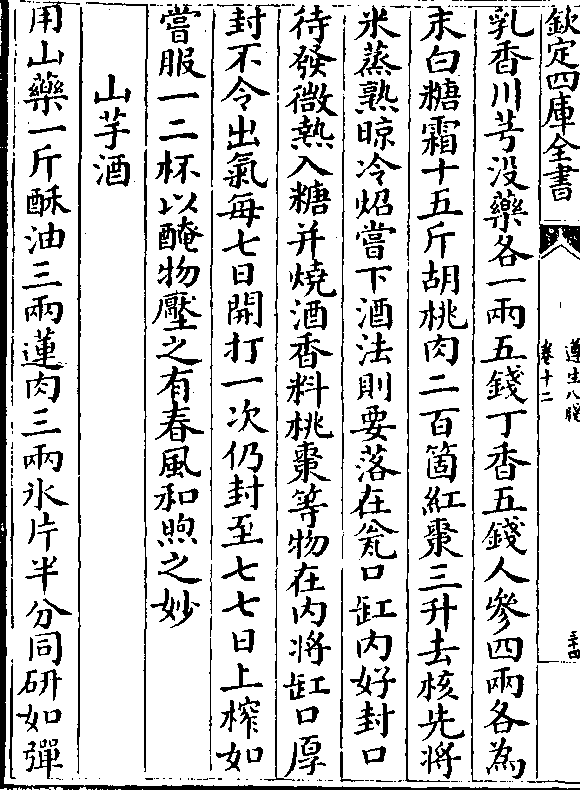 欽定四庫全書
遵生八牋
卷十二
三十四
乳香川芎没藥各一兩五錢丁香五錢人參四兩各為
末白糖霜十五斤胡桃肉二百箇紅棗三升去核先將
米蒸熟晾冷炤嘗下酒法則要落在瓮口缸内好封口
待發微熱入糖并燒酒香料桃棗等物在内將缸口厚
封不令出氣每七日開打一次仍封至七七日上榨如
嘗服一二杯以醃物壓之有春風和煦之妙
山芋酒
用山藥一斤酥油三兩蓮肉三兩氷片半分同研如彈